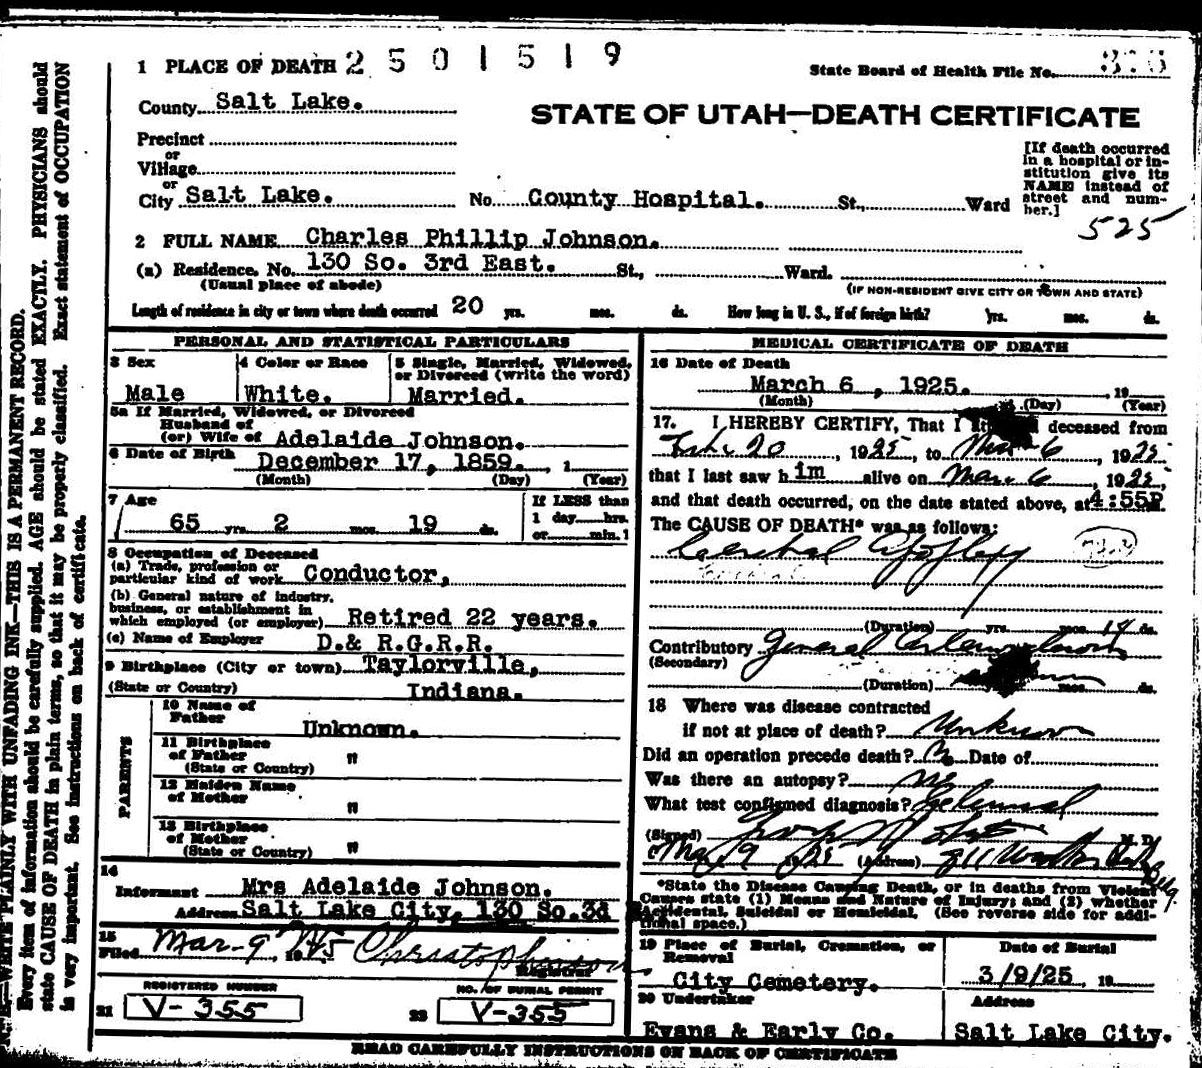 1 PLACE OF DEATH 2 5 0 1 5 1 9
State Board of Health File No.
County Salt Lake.
STATE OF UTAH—DEATH CERTIFICATE
Precinct
or
Village
or
City Salt Lake. No. County Hospital. St., Ward
[If death occurred
in a hospital or in-
stitution give its
NAME instead of
street and num-
ber.]
525
2 FULL NAME Charles Phillip Johnson.
(a) Residence. No. 130 So. 3rd East. St., Ward.
(Usual place of abode)
(IF NON-RESIDENT GIVE CITY OR TOWN AND STATE)
Length of residence in city or town where death occurred 20 yrs. mos. ds. How long in U. S., if of foreign birth? yrs. mos. ds.
PERSONAL AND STATISTICAL PARTICULARS
3 Sex
Male
4 Color or Race
White.
5 Single, Married, Widowed,
or Divorced (write the word)
Married.
5a If Married, Widowed, or Divorced
Husband of
(or) Wife of Adelaide Johnson.
6 Date of Birth December 17, 1859. , 1
(Month) (Day) (Year)
7 Age
65 yrs. 2 mos. 19 ds.
If LESS than
1 day hrs.
or min.
8 Occupation of Deceased
(a) Trade, profession or
particular kind of work Conductor,
(b) General nature of industry,
business, or establishment in
which employed (or employer) Retired 22 years.
(c) Name of Employer D.& R.G.R.R.
9 Birthplace (City or town) Taylorville,
(State or Country) Indiana.
PARENTS
10 Name of
Father Unknown.
11 Birthplace
of Father "
(State or Country)
12 Maiden Name
of Mother "
13 Birthplace
of Mother "
(State or Country)
14
Informant Mrs Adelaide Johnson.
Address Salt Lake City, 130 So.3d
15
Filed Mar-9 1925
Registrar
REGISTERED NUMBER
21 V-355
NO. OF BURIAL PERMIT
22 V-355
MEDICAL CERTIFICATE OF DEATH
16 Date of Death
March 6, 1925. , 19
(Month) (Day) (Year)
17. I HEREBY CERTIFY, That I deceased from
Feb 20, 1925, to Mar 6, 1925.
that I last saw him alive on Mar. 6, 1925,
and that death occurred, on the date stated above, at 4:55P m.
The CAUSE OF DEATH* was as follows:
Cerebral Apoplexy
(Duration) yrs. mos. 14 ds.
Contributory General Arteriosclerosis
(Secondary)
(Duration) mos. ds.
18 Where was disease contracted
if not at place of death? Unknown
Did an operation precede death? No Date of
Was there an autopsy? No
What test confirmed diagnosis?
(Signed) M. D.
Mar 9 1925 (Address)
*State the Disease Causing Death, or in deaths from Violent
Causes state (1) Means and Nature of Injury; and (2) whether
Accidental, Suicidal or Homicidal. (See reverse side for addi-
tional space.)
19 Place of Burial, Cremation, or
Removal
City Cemetery.
Date of Burial
3/9/25 , 19
20 Undertaker
Evans & Early Co.
Address
Salt Lake City.
READ CAREFULLY INSTRUCTIONS ON BACK OF CERTIFICATE
N. B.—WRITE PLAINLY WITH UNFADING INK—THIS IS A PERMANENT RECORD.
Every item of information should be carefully supplied. AGE should be stated EXACTLY. PHYSICIANS should
state CAUSE OF DEATH in plain terms, so that it may be properly classified. Exact statement of OCCUPATION
is very important. See instructions on back of certificate.